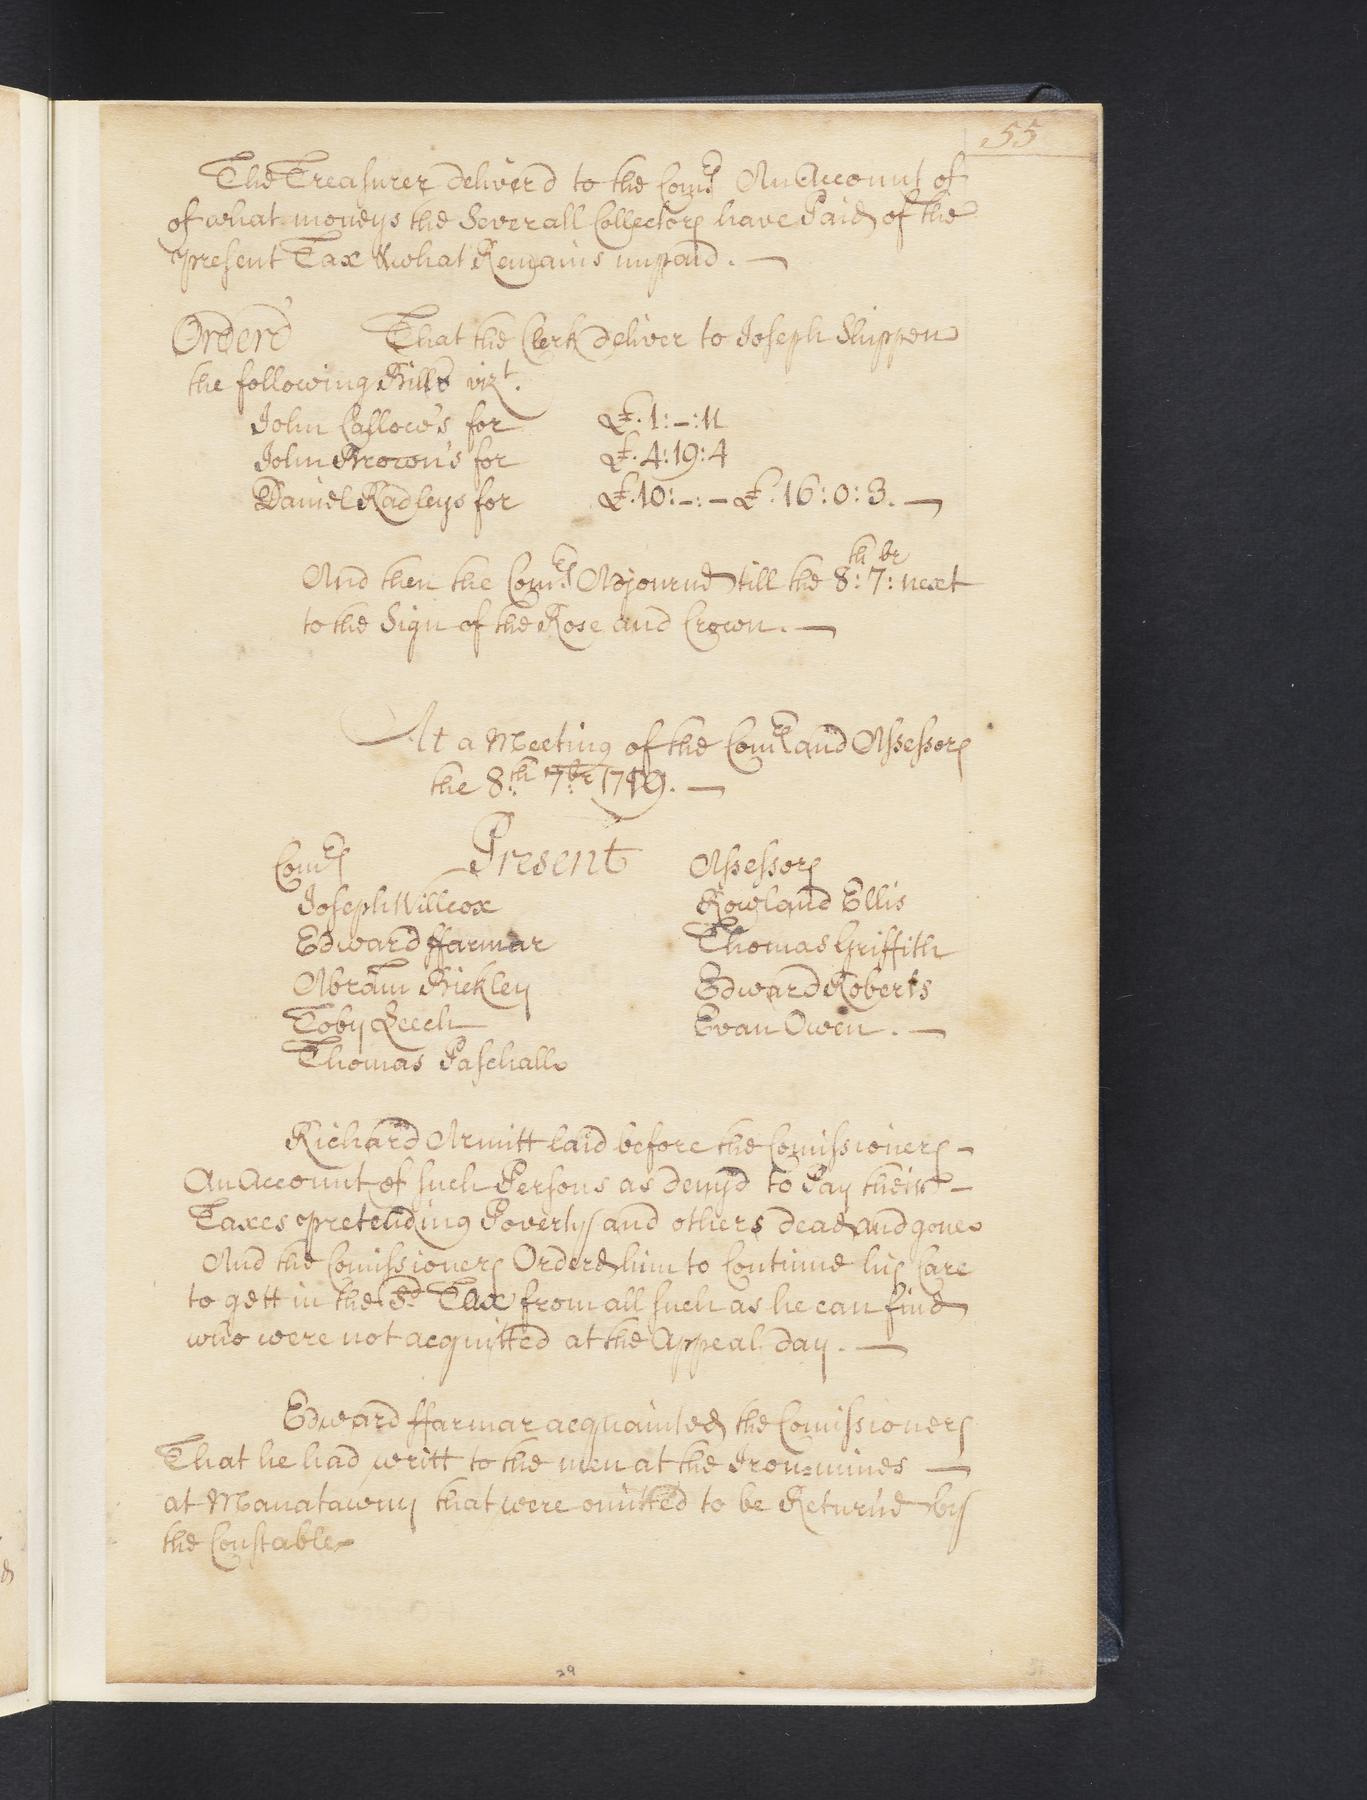 55
The Treasurer deliver'd to the Com.rs An Account of
of what moneys the Severall Collectors have Paid of the
present Tax & what Remains unpaid. —
Order'd That the Clerk deliver to Joseph Shippen
the following Bills vizt.
John Callow's for £.1:–:11
John Brown's for £.4:19:4
Daniel Radleys for £.10:–:– £.16:0:3. —
And then the Com.rs Adjournd till the 8:th 7:br next
to the Sign of the Rose and Crown. —
At a Meeting of the Com.rs and Assessors
the 8.th 7.br 1719. —
Com.rs Present Assessors
Joseph Willcox Rowland Ellis
Edward ffarmar Thomas Griffith
Abram Bickley Edward Roberts
Toby Leech Evan Owen. —
Thomas Paschall
Richard Armitt laid before the Comissioners –
An Account of such Persons as deny'd to Pay their –
Taxes pretending Poverty and others dead and gone
And the Comissioners Orderd him to Continue his Care
to gett in the Sd. Tax from all such as he can find
who were not acquitted at the Appeal day. —
Edward ffarmar acquainted the Comissioners
That he had writt to the men at the Iron=mines —
at Manatawny that were omitted to be Return'd by
the Constable
29